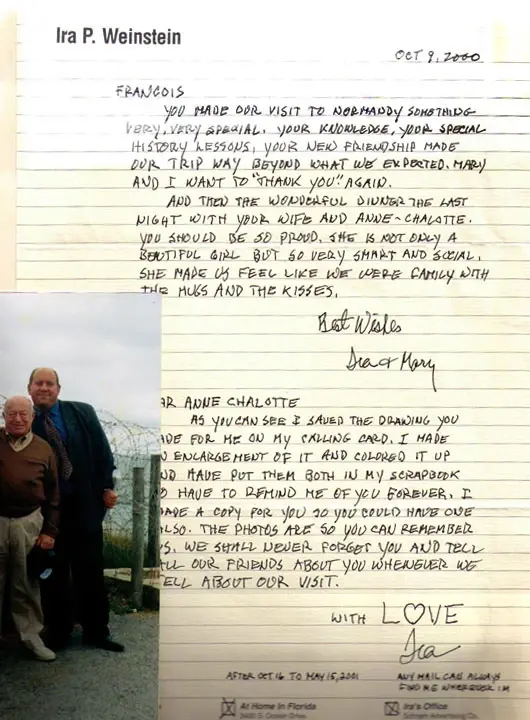 Ira P. Weinstein
OCT 9, 2000
FRANCOIS
YOU MADE OUR VISIT TO NORMANDY SOMETHING
VERY, VERY SPECIAL. YOUR KNOWLEDGE, YOUR SPECIAL
HISTORY LESSONS, YOUR NEW FRIENDSHIP MADE
OUR TRIP WAY BEYOND WHAT WE EXPECTED. MARY
AND I WANT TO "THANK YOU" AGAIN.
AND THEN THE WONDERFUL DINNER THE LAST
NIGHT WITH YOUR WIFE AND ANNE-CHALOTTE.
YOU SHOULD BE SO PROUD. SHE IS NOT ONLY A
BEAUTIFUL GIRL BUT SO VERY SMART AND SOCIAL.
SHE MADE US FEEL LIKE WE WERE FAMILY WITH
THE HUGS AND THE KISSES.
Best Wishes
Ira & Mary
AR ANNE CHALOTTE
AS YOU CAN SEE I SAVED THE DRAWING YOU
ADE FOR ME ON MY CALLING CARD. I MADE
N ENLARGEMENT OF IT AND COLORED IT UP
ND HAVE PUT THEM BOTH IN MY SCRAPBOOK
O HAVE TO REMIND ME OF YOU FOREVER. I
ADE A COPY FOR YOU SO YOU COULD HAVE ONE
LSO. THE PHOTOS ARE SO YOU CAN REMEMBER
S. WE SHALL NEVER FORGET YOU AND TELL
LL OUR FRIENDS ABOUT YOU WHENEVER WE
ELL ABOUT OUR VISIT.
WITH LOVE
Ira
AFTER OCT 16 TO MAY 15, 2001
ANY MAIL CAN ALWAYS
FIND ME WHEREVER IM
At Home in Florida
Ira's Office